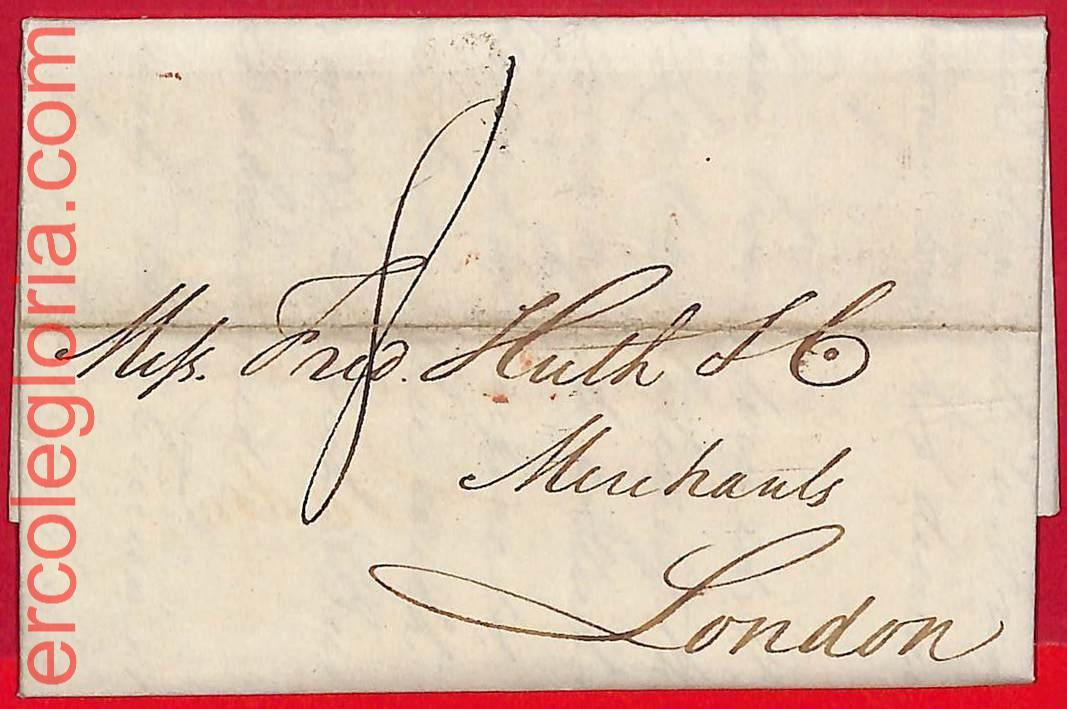 ercolegloria.com
8
Mess. Fred. Huth & Co
Merchants
London